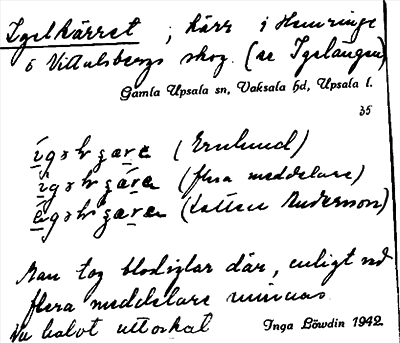 Igelkärret ; kärr i Henringe
o Vittulsbergs skog. (se Igelängen)
Gamla Upsala sn, Vaksala hd, Upsala l.
35
(Ernlund)
(flera meddelare)
Anderson)
Man tog blodiglar där, enligt vad
flera meddelare minnas.
Nu halvt uttorkat
Inga Löwdin 1942.